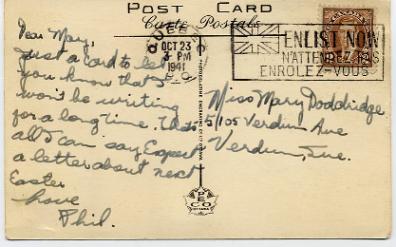 POST CARD
Carte Postale
QUE
OCT 23
3 PM
1941
P.Q.
CANADA
ENLIST NOW
N'ATTENDEZ PAS
ENROLEZ-VOUS
Dear Mary,
Just a card to let
you know that I
won't be writing
for a long time. That's
all I can say. Expect
a letter about next
Easter
Love
Phil.
Miss Mary Doddridge
5105 Verdun Ave
Verdun, Que.
PECO